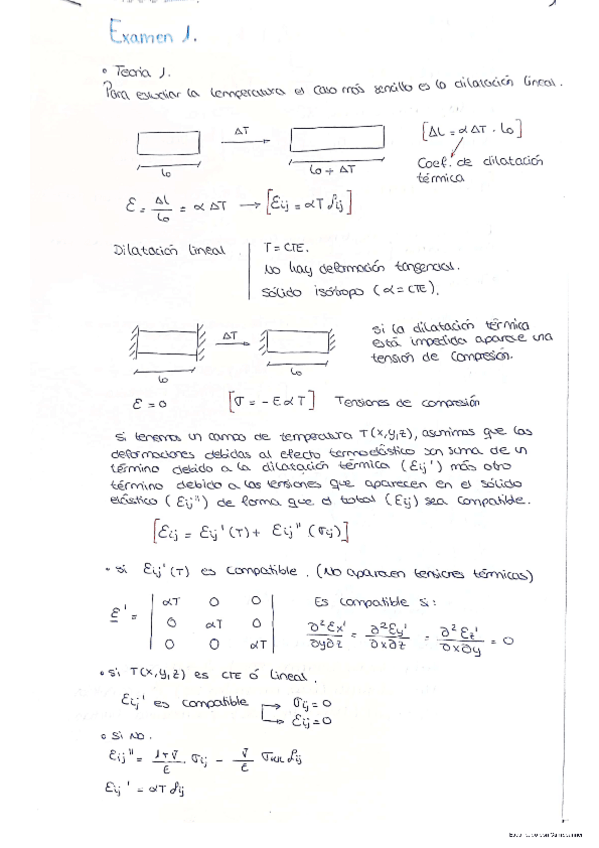 Examen 1.
• Teoría 1.
Para estudiar la temperatura el caso más sencillo es la dilatación lineal.
ΔT
[ΔL = αΔT · lo]
lo
lo + ΔT
Coef. de dilatación
térmica
ε = ΔL/lo = α ΔT → [εij = αT δij]
Dilatación lineal
T = CTE.
No hay deformación tangencial.
Sólido isótropo (α = CTE).
ΔT
lo
lo
si la dilatación térmica
está impedida aparece una
tensión de compresión.
ε = 0
[σ = - EαT] Tensiones de compresión
si tenemos un campo de temperatura T(x,y,z), asumimos que las
deformaciones debidas al efecto termoelástico son suma de un
término debido a la dilatación térmica (εij') más otro
término debido a las tensiones que aparecen en el sólido
elástico (εij'') de forma que el total (εij) sea compatible.
[εij = εij'(T) + εij''(σij)]
• si εij'(T) es compatible. (No aparecen tensiones térmicas)
ε' = | αT 0 0 |
| 0 αT 0 |
| 0 0 αT |
Es compatible si:
∂²εx'/∂y∂z = ∂²εy'/∂x∂z = ∂²εz'/∂x∂y = 0
• si T(x,y,z) es CTE ó lineal.
εij' es compatible → σij = 0
→ εij = 0
• si NO.
εij'' = 1+ν/E · σij - ν/E σkk δij
εij' = αT δij